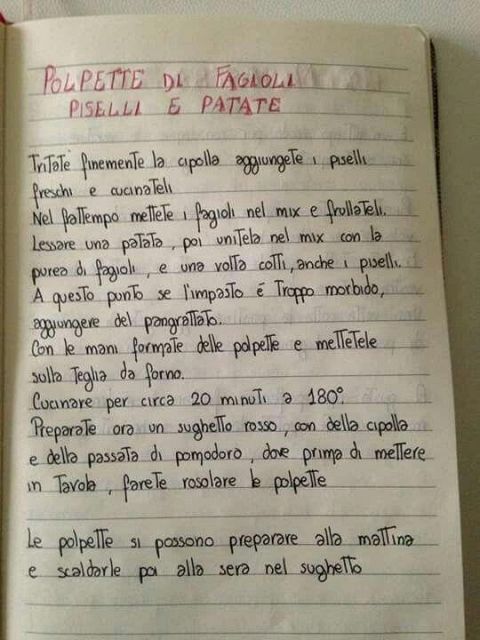 POLPETTE DI FAGIOLI
PISELLI E PATATE
Tritate finemente la cipolla aggiungete i piselli
freschi e cucinateli
Nel frattempo mettete i fagioli nel mix e frullateli.
Lessare una patata, poi unitela nel mix con la
purea di fagioli, e una volta cotti, anche i piselli.
A questo punto se l'impasto é troppo morbido,
aggiungere del pangrattato.
Con le mani formate delle polpette e mettetele
sulla teglia da forno.
Cucinare per circa 20 minuti a 180°.
Preparate ora un sughetto rosso, con della cipolla
e della passata di pomodoro, dove prima di mettere
in tavola, farete rosolare le polpette
Le polpette si possono preparare alla mattina
e scaldarle poi alla sera nel sughetto